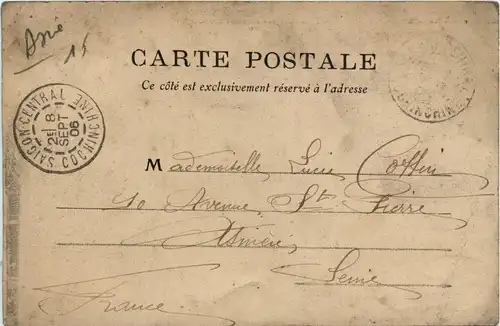 Asie
15
CARTE POSTALE
Ce côté est exclusivement réservé à l'adresse
SAIGON-CENTRAL
8
SEPT
06
COCHINCHINE
Mademoiselle Lucie
10 Avenue Ste Pierre
Asnières
Seine
France